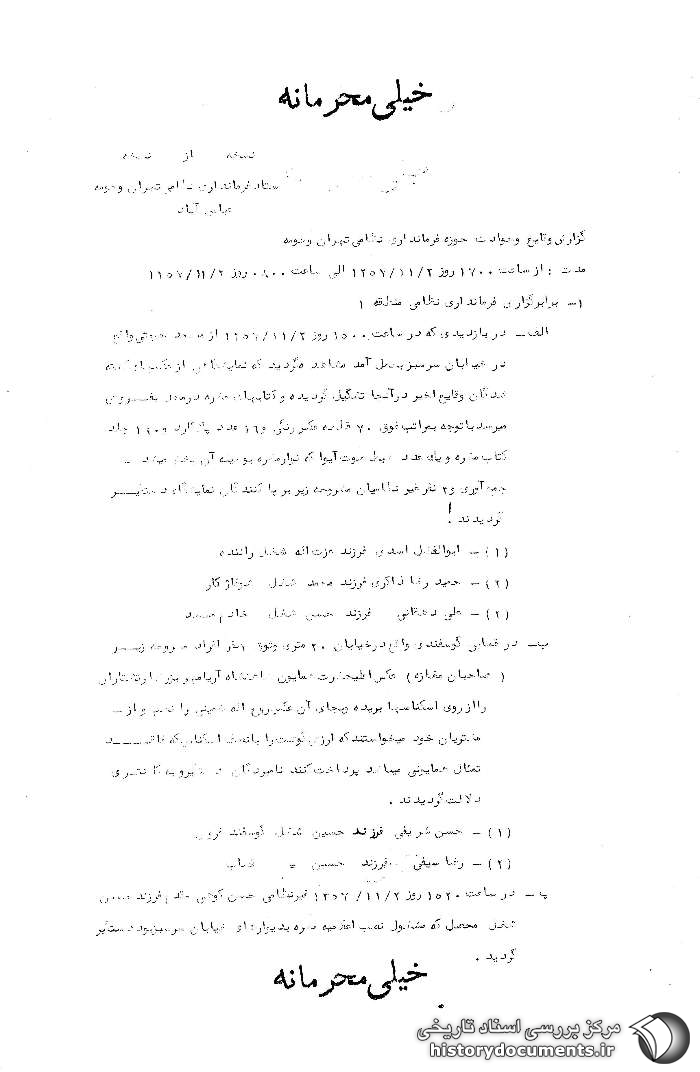 خیلی محرمانه
نسخه از نسخه
ستاد فرمانداری نظامی تهران و حومه
عباس آباد
گزارش وقایع و حوادث حوزه فرمانداری نظامی تهران و حومه
مدت : از ساعت ۱۷۰۰ روز ۱۳۵۷/۱۱/۲ الی ساعت روز
۱- برابر گزارش فرمانداری نظامی منطقه ۱
الف- در بازدیدی که در ساعت ۱۵۰۰ روز ۱۳۵۷/۱۱/۲ از مسجد واقع
در خیابان سرسبز بعمل آمد مشاهده گردید که نمایشگاهی از عکس کشته
شدگان وقایع اخیر در آنجا تشکیل گردیده و کتابهای مضره در معرض بفروش
میرسد با توجه بمراتب فوق ۷۰ قطعه عکس رنگی و ۱۶ عدد پلاکارد و جلد
کتاب مضره و یک عدد ضبط صوت آیوا که نوار مضره بوسیله آن پخش میشد
جمع آوری و ۳ نفر غیر نظامیان مشروحه زیر برپا کنندگان نمایشگاه دستگیر
گردیدند !
(۱) - ابوالفضل اسدی فرزند عزت اله شغل راننده
(۲) - حمید رضا ذاکری فرزند محمد شغل شوفاژ کار
(۳) - علی دهقانی فرزند حسن شغل خادم مسجد
ب- در قصابی گوسفندی واقع در خیابان ۲۰ متری نفر افراد مشروحه زیر
( صاحبان مغازه ) عکس اعلیحضرت همایون شاهنشاه آریامهر بزرگ ارتشتاران
را از روی اسکناسها بریده و بجای آن عکس روح اله خمینی را نصب و از
مشتریان خود میخواستند که ارزش گوشت را با اسکناس که فاقد
تمثال همایونی میباشد پرداخت کنند نامبردگان دستگیر و به کلانتری
دلالت گردیدند .
(۱) - حسن شریفی فرزند حسین شغل گوسفند فروش
(۲) - رضا سیفی فرزند حسین قصاب
پ- در ساعت ۱۵۲۰ روز ۱۳۵۷/۱۱/۲ غیرنظامی حسن فرزند
شغل محصل که مشغول نصب اعلامیه مضره بدیوارهای خیابان سرسبز بود دستگیر
گردید .
خیلی محرمانه
مرکز بررسی اسناد تاریخی
historydocuments.ir